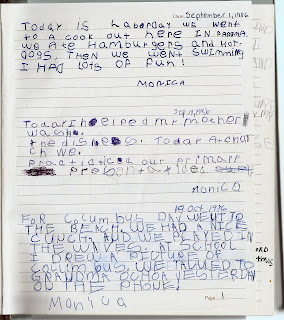 Date September 1, 1986
Today IS Laborday we went
to a cook out here IN PANAMA.
we Ate HamburgerS and Hot-
DOGS, THeN we weNT SWimmiNg
I HAD LOTS oF Fun!
MONICA
Sep 14, 1986
Today I helped mr mother
wash
the dishes. Today At chur
ch we.
practiced our primary
presentation
MoniCa
19 oct. 1986
FOR COLUMBUS DAY WENT TO
THE BEACH. WE HAD A NICE
LUNCH. AND WE PLAYED IN
THE WAVES. AT SCHOOL
I DREW A PICTURE OF
COLUMBUS. WE TALKED TO
GRANDMA SCHOA YESTERDAY
ON THE PHONE!
Monica
Page 1